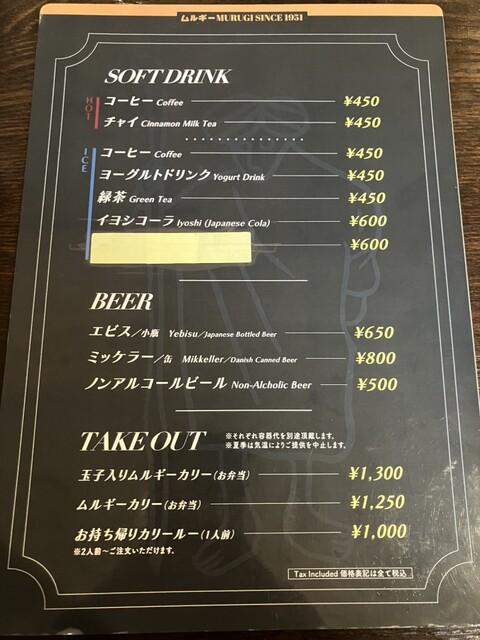 ムルギーMURUGI SINCE 1951
SOFT DRINK
HOT
コーヒー Coffee ¥450
チャイ Cinnamon Milk Tea ¥450
ICE
コーヒー Coffee ¥450
ヨーグルトドリンク Yogurt Drink ¥450
緑茶 Green Tea ¥450
イヨシコーラ Iyoshi (Japanese Cola) ¥600
¥600
BEER
エビス／小瓶 Yebisu／Japanese Bottled Beer ¥650
ミッケラー／缶 Mikkeller／Danish Canned Beer ¥800
ノンアルコールビール Non-Alcholic Beer ¥500
TAKE OUT
※それぞれ容器代を別途頂戴します。
※夏季は気温によりご提供を中止します。
玉子入りムルギーカリー(お弁当) ¥1,300
ムルギーカリー(お弁当) ¥1,250
お持ち帰りカリールー(1人前) ¥1,000
※2人前〜ご注文いただけます。
Tax Included 価格表記は全て税込